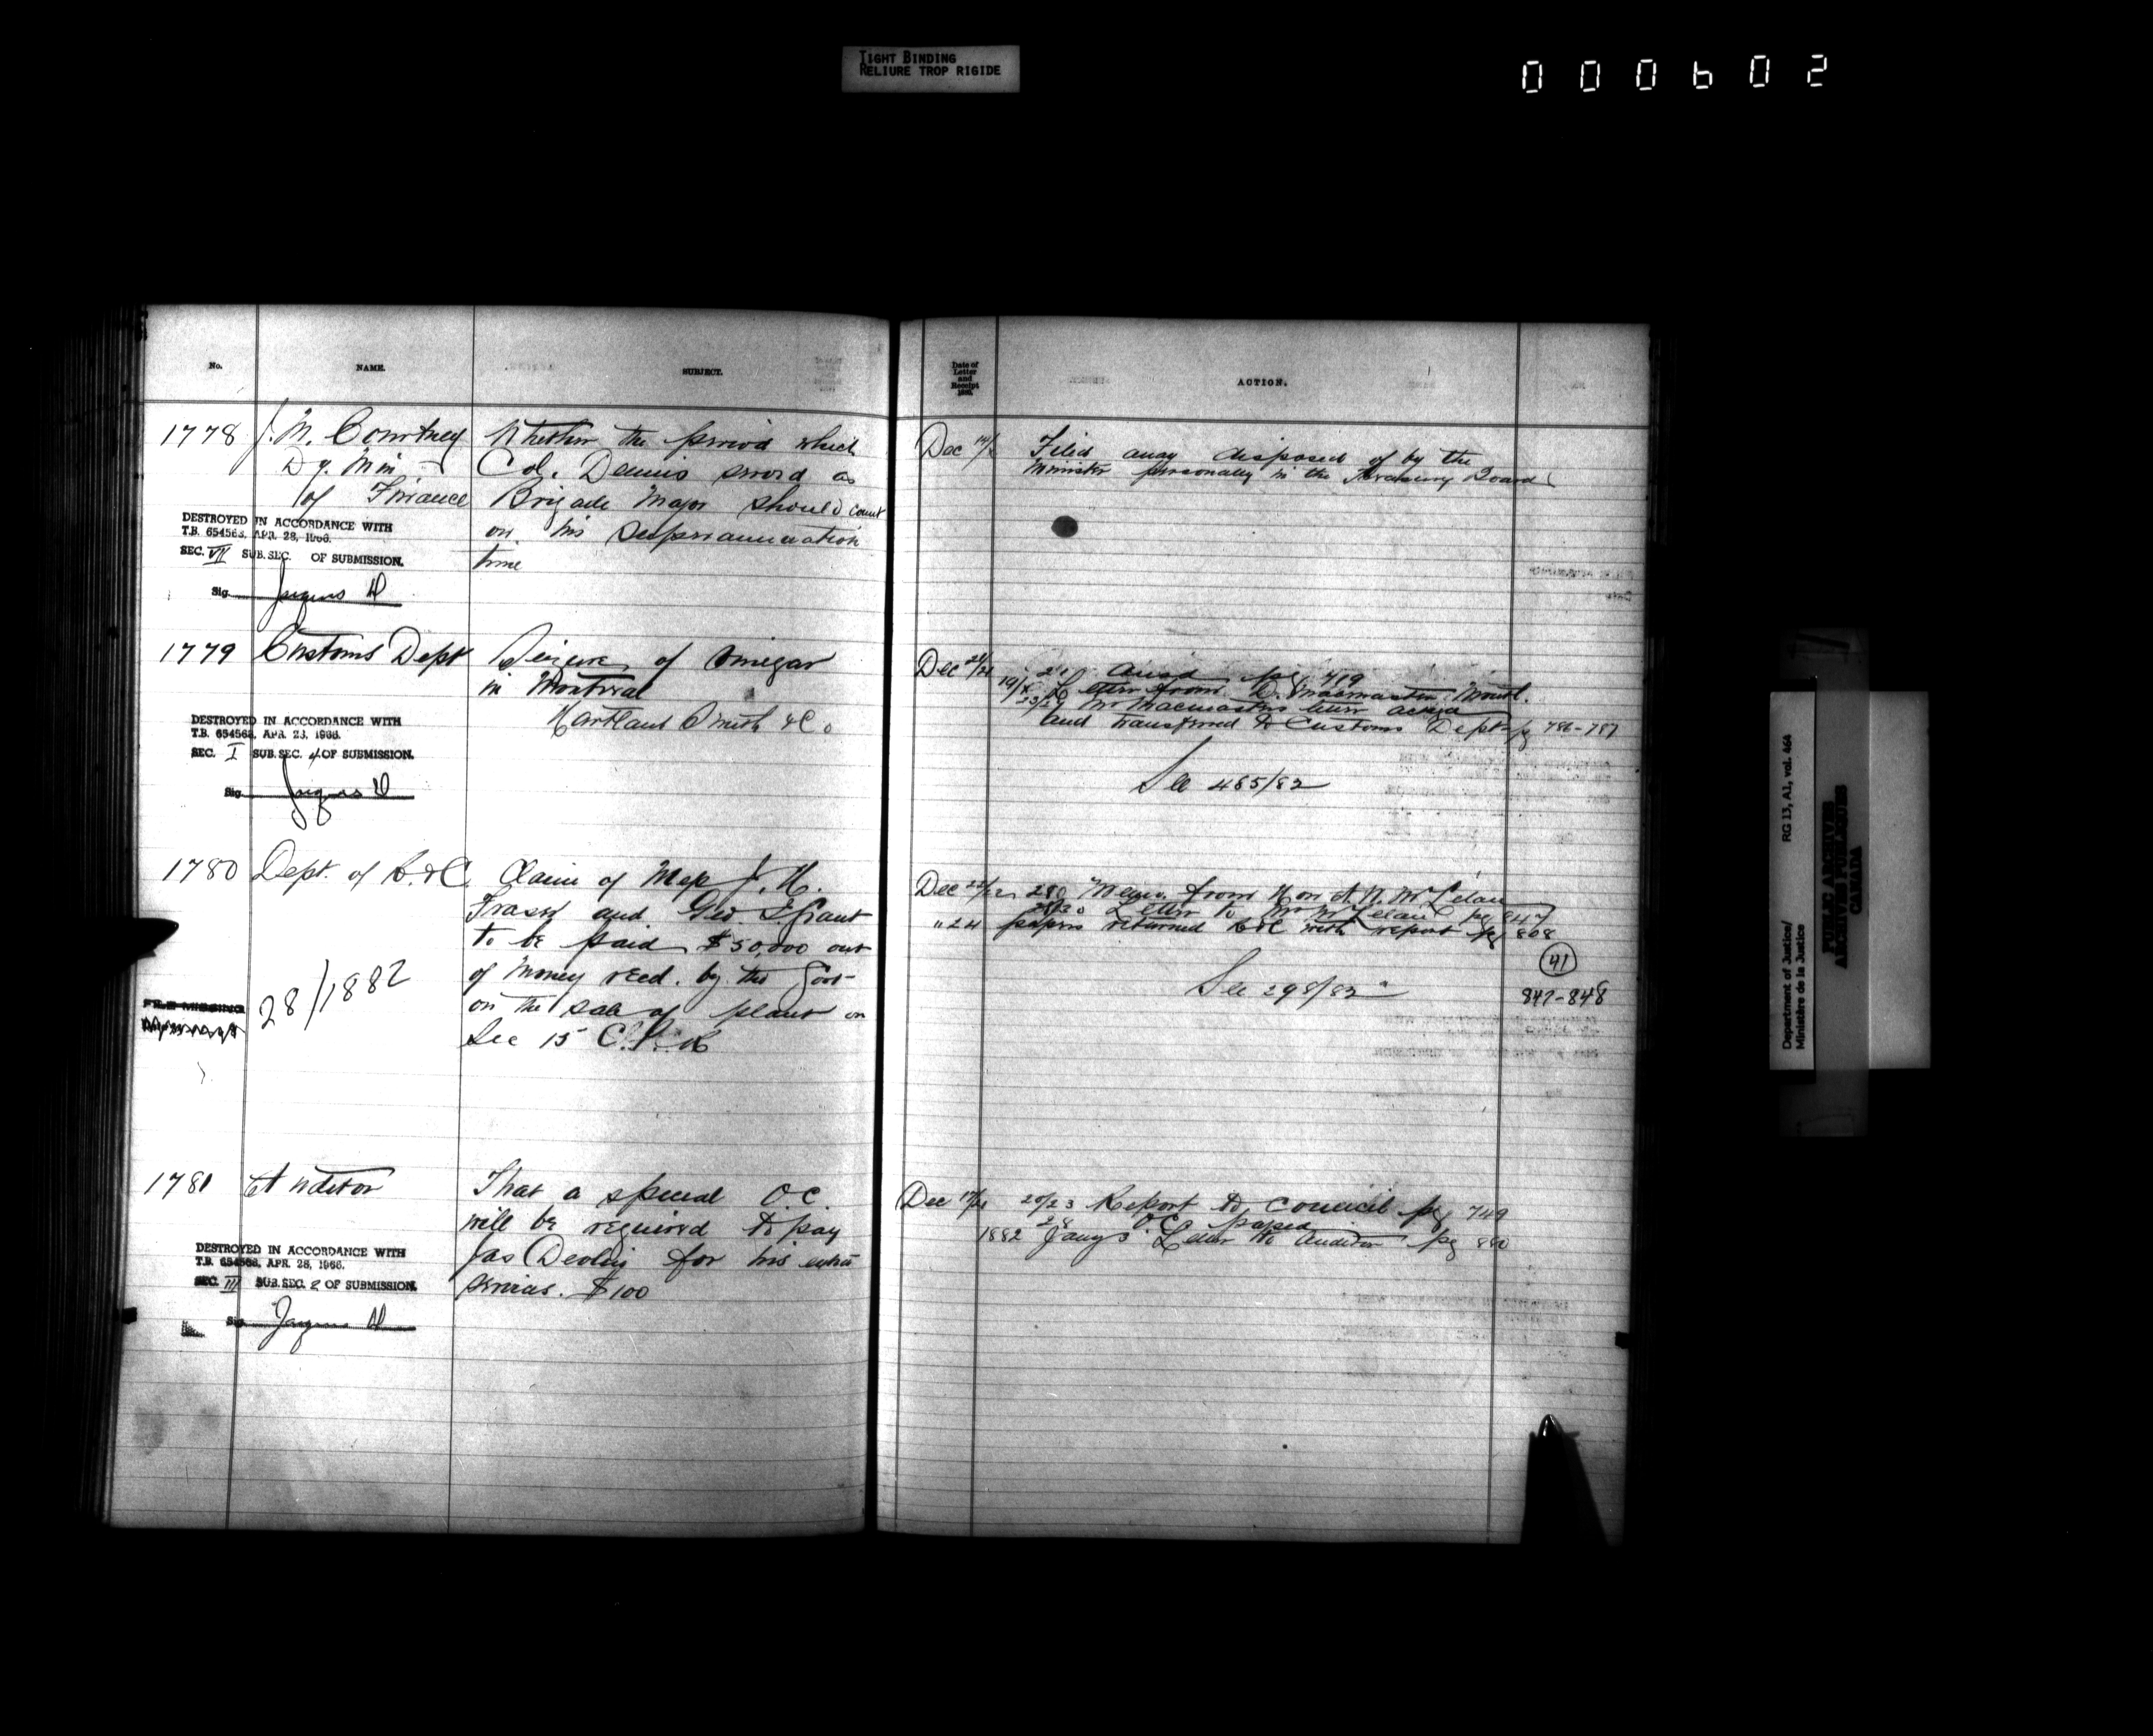 TIGHT BINDING
RELIURE TROP RIGIDE
000602
No.
NAME.
SUBJECT.
1778 J. M. Courtney Whether the period which
Dy. Min Col. Dennis served as
of Finance Brigade Major should count
on his Superannuation
time
DESTROYED IN ACCORDANCE WITH
T.B. 654568, APR. 28, 1966.
SEC. VII SUB. SEC. OF SUBMISSION.
Sig.
1779 Customs Dept Seizure of Vinegar
in Montreal
Smith & Co
DESTROYED IN ACCORDANCE WITH
T.B. 654568, APR. 28, 1966.
SEC. I SUB. SEC. 4 OF SUBMISSION.
Sig.
1780 Dept. of R. & C. Claim of J. H.
Fraser and Geo Grant
to be paid $50,000 out
of money recd. by the Govt
on the sale of plant on
Sec 15 C.P.R
28/1882
FILE MISSING
1781 Auditor That a special O.C.
will be required to pay
Jas Devlin for his extra
services. $100
DESTROYED IN ACCORDANCE WITH
T.B. 654568, APR. 28, 1966.
SEC. III SUB. SEC. 2 OF SUBMISSION.
Sig.
Date of
Letter
and
Receipt
ACTION.
Dec Filed away disposed of by the
Minister personally in the Treasury Board
Dec pg 719
Letter from D. Macmaster Montl.
Mr Macmasters letter
and transferred to Customs Dept pg 786-787
See 485/82
Dec 22/22 Memo. from Hon A. W. McLelan
Letter to Mr McLelan pg 847
" 24 papers returned R&C with report pg 808
41
See 298/82
847-848
Dec 20/23 Report to Council pg 749
28 O.C. passed
1882 Jany 3 Letter to Auditor pg 880
Department of Justice/
Ministère de la Justice
RG 13, A1, vol. 464
PUBLIC ARCHIVES
ARCHIVES PUBLIQUES
CANADA